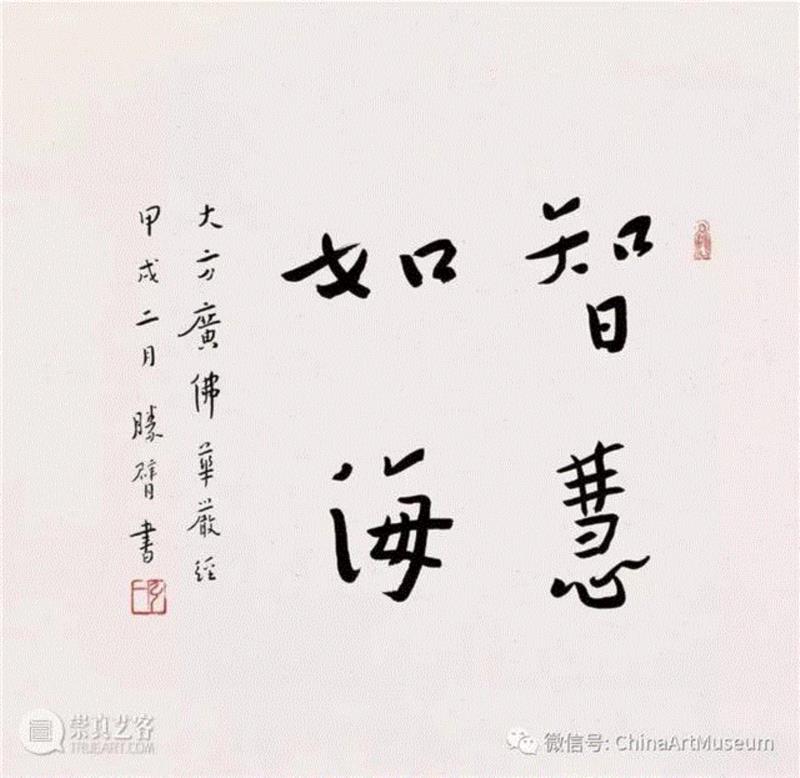 智慧
如海
大方廣佛華嚴經
甲戌二月勝臂書
崇真艺客
TRUEART.COM
微信号: ChinaArtMuseum